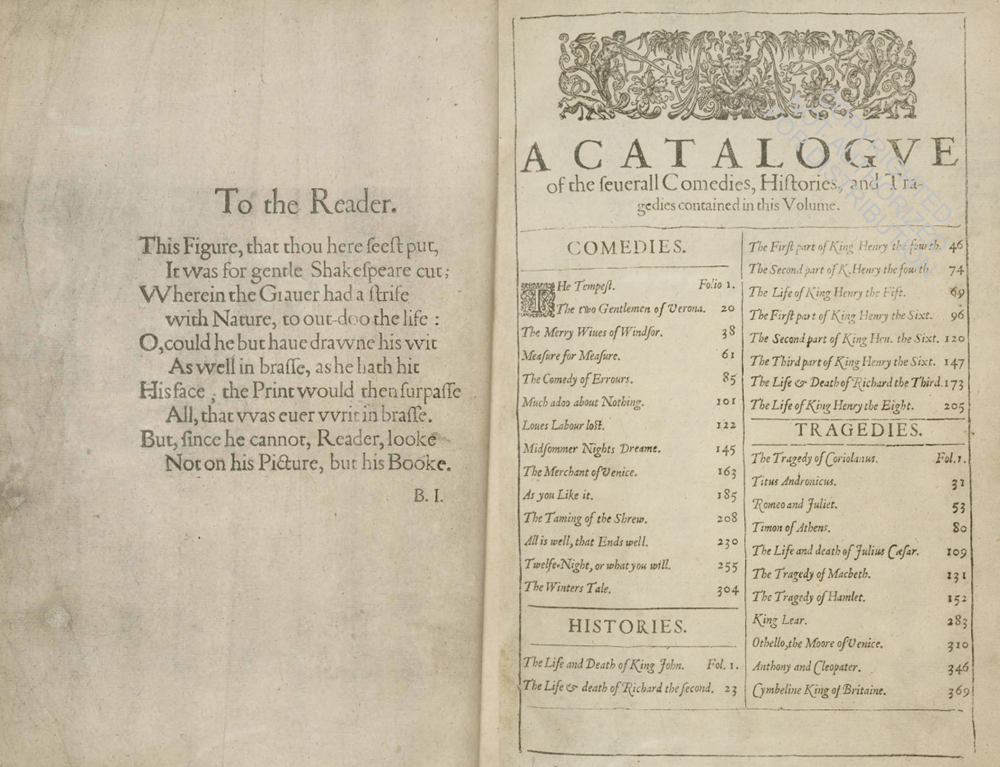 To the Reader.
This Figure, that thou here seest put,
It was for gentle Shakespeare cut;
Wherein the Grauer had a strife
with Nature, to out-doo the life :
O, could he but haue drawne his wit
As well in brasse, as he hath hit
His face ; the Print would then surpasse
All, that vvas euer vvrit in brasse.
But, since he cannot, Reader, looke
Not on his Picture, but his Booke.
B. I.
A CATALOGVE
of the seuerall Comedies, Histories, and Tra-
gedies contained in this Volume.
COMEDIES.
The Tempest. Folio 1.
The two Gentlemen of Verona. 20
The Merry Wiues of Windsor. 38
Measure for Measure. 61
The Comedy of Errours. 85
Much adoo about Nothing. 101
Loues Labour lost. 122
Midsommer Nights Dreame. 145
The Merchant of Venice. 163
As you Like it. 185
The Taming of the Shrew. 208
All is well, that Ends well. 230
Twelfe-Night, or what you will. 255
The Winters Tale. 304
HISTORIES.
The Life and Death of King John. Fol. 1.
The Life & death of Richard the second. 23
The First part of King Henry the fourth. 46
The Second part of K. Henry the fourth 74
The Life of King Henry the Fift. 69
The First part of King Henry the Sixt. 96
The Second part of King Hen. the Sixt. 120
The Third part of King Henry the Sixt. 147
The Life & Death of Richard the Third. 173
The Life of King Henry the Eight. 205
TRAGEDIES.
The Tragedy of Coriolanus. Fol. 1.
Titus Andronicus. 31
Romeo and Juliet. 53
Timon of Athens. 80
The Life and death of Julius Cæsar. 109
The Tragedy of Macbeth. 131
The Tragedy of Hamlet. 152
King Lear. 283
Othello, the Moore of Venice. 310
Anthony and Cleopater. 346
Cymbeline King of Britaine. 369
COPYRIGHTED
NOT AUTHORIZED
FOR DISTRIBUTION